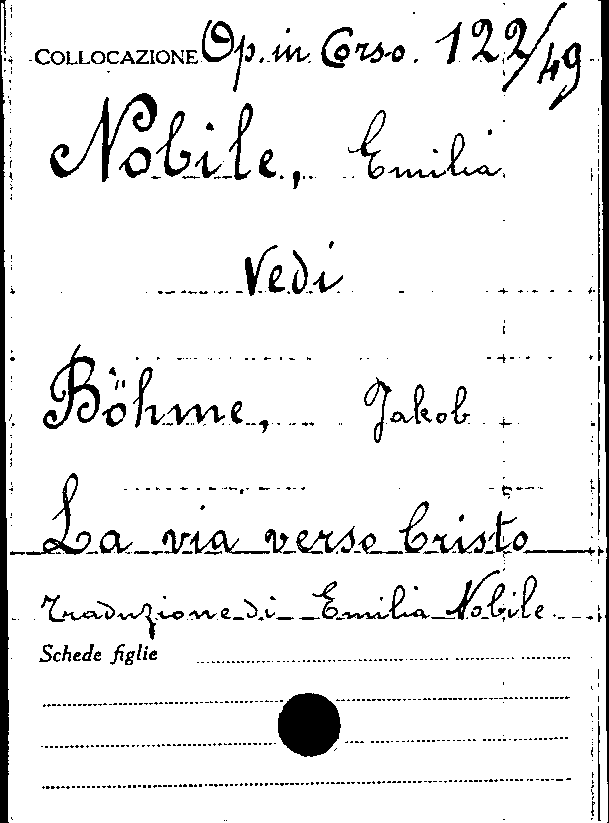 COLLOCAZIONE Op. in Corso. 122/49
Nobile, Emilia
Vedi
Böhme, Jakob
La via verso Cristo
Traduzione di Emilia Nobile
Schede figlie